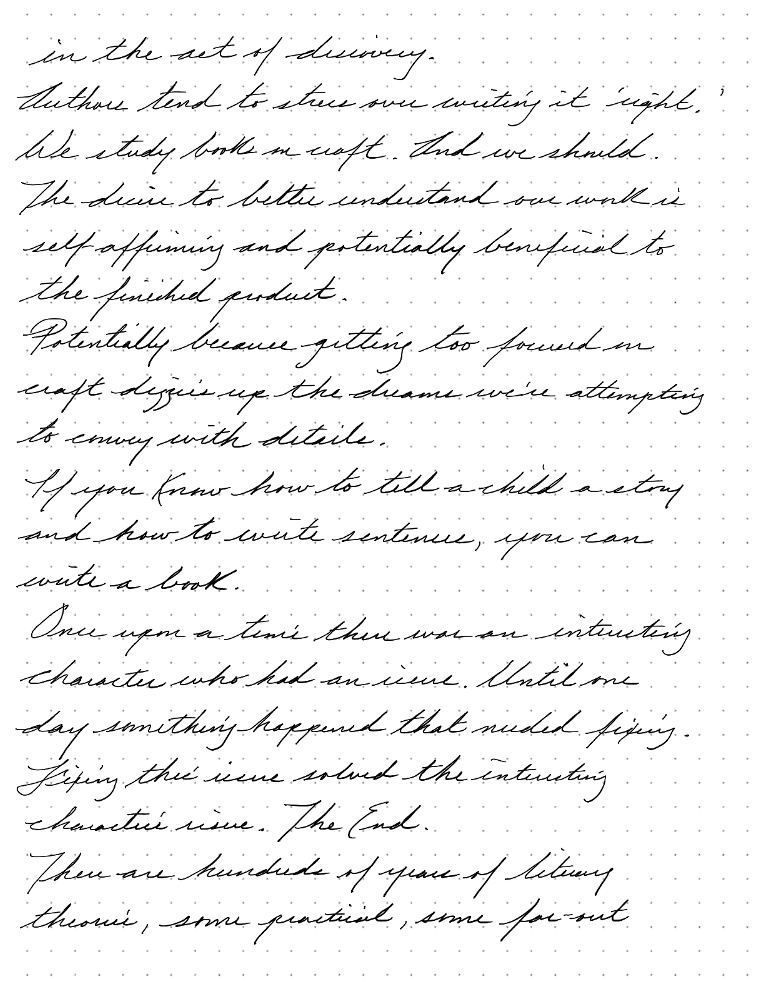 in the act of discovery.
Authors tend to stress over writing it 'right.'
We study books on craft. And we should.
The desire to better understand our work is
self affirming and potentially beneficial to
the finished product.
Potentially because getting too focused on
craft dizzies up the dreams we're attempting
to convey with details.
If you know how to tell a child a story
and how to write sentences, you can
write a book.
Once upon a time there was an interesting
character who had an issue. Until one
day something happened that needed fixing.
Fixing this issue solved the interesting
character's issue. The End.
There are hundreds of years of literary
theories, some practical, some far-out